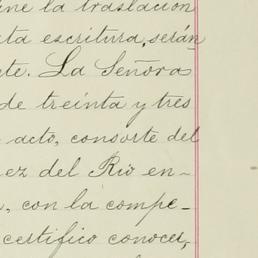 ine la traslacion
ta escritura, serán
te. La Señora
de treinta y tres
acto, consorte del
ez del Rio en-
, con la compe-
certifico conocer,